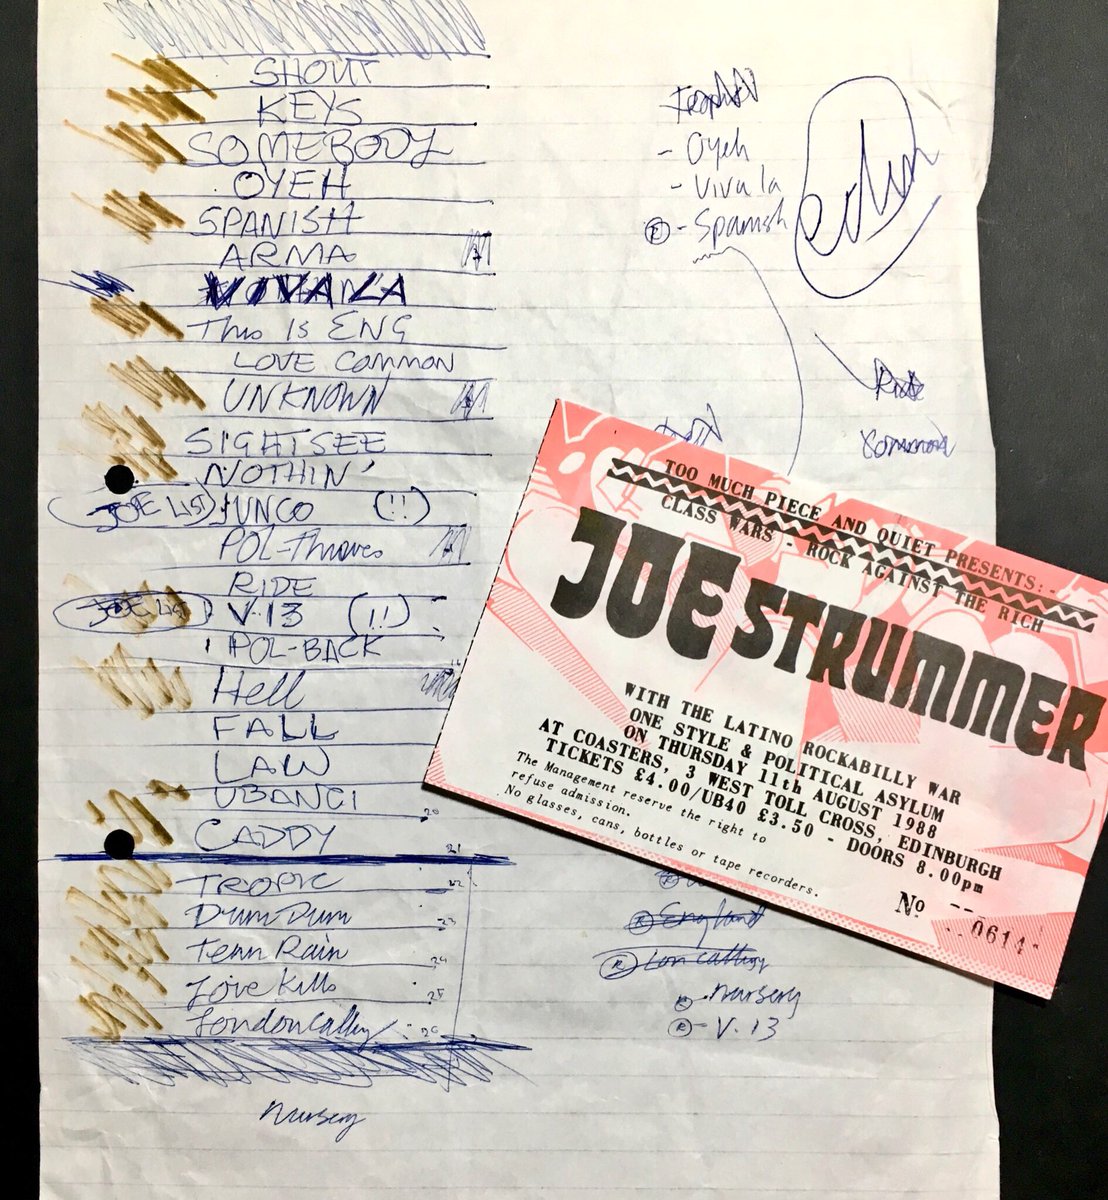 SHOUT
KEYS
SOMEBODY
OYEH
SPANISH
ARMA
VIVA LA
This IS ENG
LOVE COMMON
UNKNOWN
SIGHTSEE
NOTHIN'
JOE LIST JUNCO (!!)
POL-Throves
RIDE
JOE LIST V.13 (!!)
POL-BACK
Hell
FALL
LAW
UBANGI 20
CADDY 21
TROPIC 22
Drum Dum 23
Tenn Rain 24
Love Kills 25
London Calling 26
Nursery
- Oyeh
- Viva la
R - Spanish
Common
R England
R Lon calling
Nursery
R - V.13
TOO MUCH PIECE AND QUIET PRESENTS:-
CLASS WARS - ROCK AGAINST THE RICH
JOE STRUMMER
WITH THE LATINO ROCKABILLY WAR
ONE STYLE & POLITICAL ASYLUM
ON THURSDAY 11th AUGUST 1988
AT COASTERS, 3 WEST TOLL CROSS, EDINBURGH
TICKETS £4.00/UB40 £3.50 - DOORS 8.00pm
The Management reserve the right to
refuse admission.
No glasses, cans, bottles or tape recorders.
No 0614